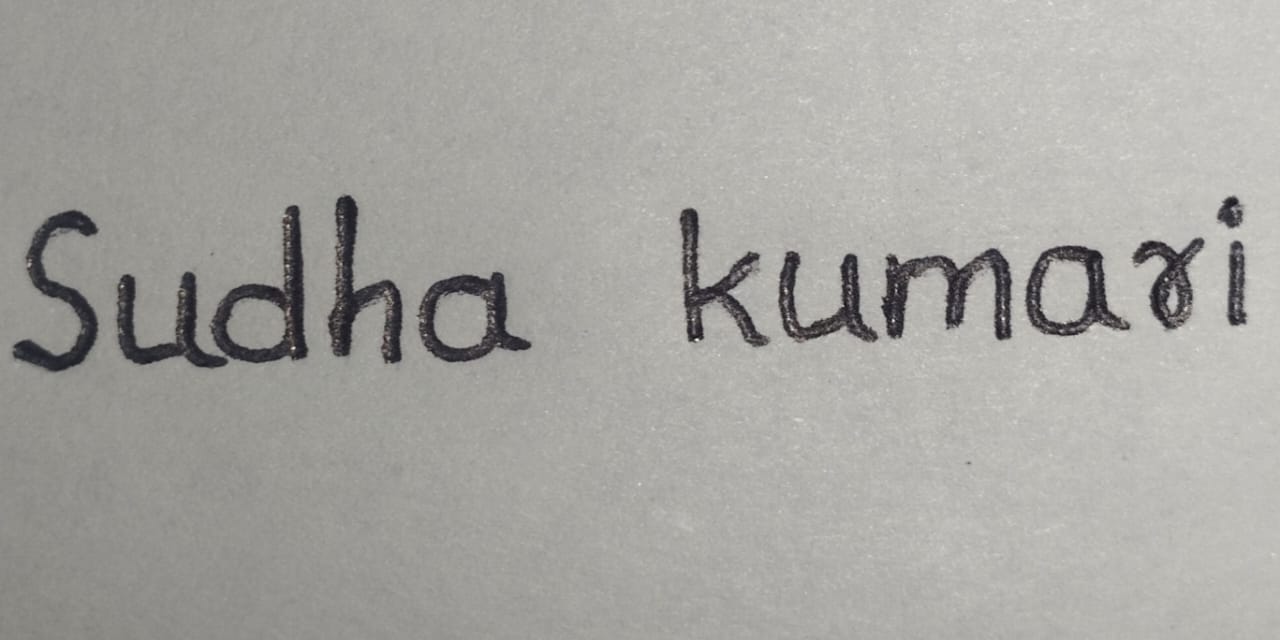 Sudha kumari